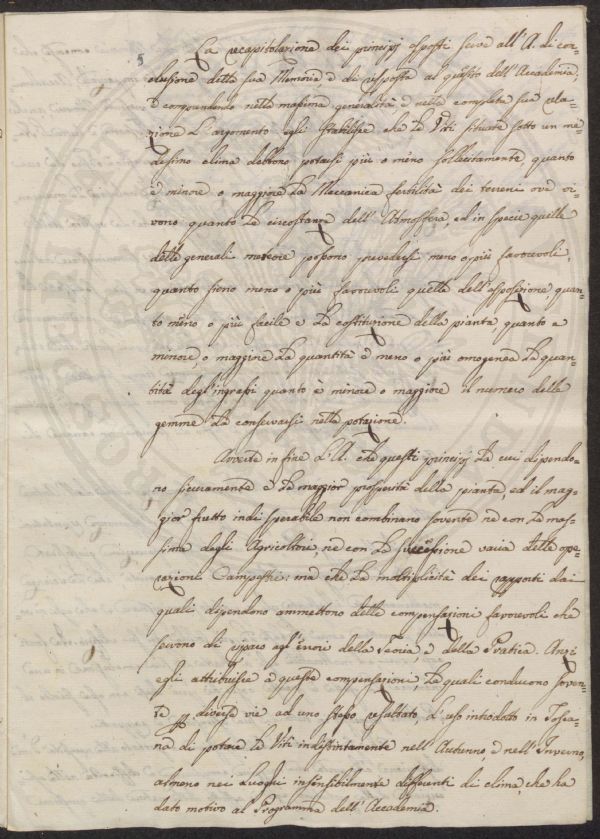 5
La recapitolazione dei principj esposti serve all'A. di con=
clusione della sua Memoria e di risposta al quesito dell'Accademia,
e comprendendo nella massima generalità e nella completa sua rela=
zione L'argomento egli stabilisce che Le Viti situate sotto un me=
desimo clima debbono potarsi più o meno sollecitamente, quanto
è minore o maggiore La Meccanica fertilità dei terreni ove vi=
vono quanto Le circostanze dell'Atmosfera, ed in specie quelle
delle generali meteore possono prevedersi meno o più favorevoli,
quanto sieno meno o più favorevoli quelle dell'esposizione, quan=
to meno o più facile è La costituzione della pianta, quanto è
minore, o maggiore La quantità e meno o più omogenea La quan=
tità degl'ingrassi quanto è minore o maggiore il numero delle
gemme da conservarsi nella potazione.
Avverte in fine L'A. che questi principj da cui dipendo=
no sicuramente e La maggior prosperità della pianta, ed il mag=
gior frutto indi sperabile non combinano sovente nè con La mas=
sima degli Agricoltori, nè con La successione varia delle ope=
razioni Campestri: ma che La moltiplicità dei rapporti dai
quali dipendono ammettono delle compensazioni favorevoli che
servono di riparo agl'errori della Teoria, e della Pratica. Anzi
egli attribuisce a queste compensazioni, Le quali conducono soven=
te p. diverse vie ad uno stesso resultato, L'uso introdotto in Tosca=
na di potare Le Viti indistintamente nell'Autunno, e nell'Inverno,
almeno nei Luoghi insensibilmente differenti di clima, che ha
dato motivo al Programma dell'Accademia.